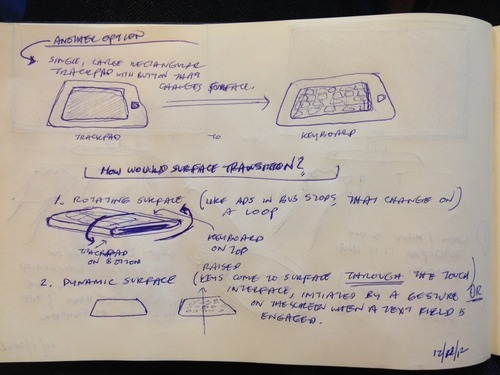 ANOTHER OPTION
SINGLE, LARGE RECTANGULAR
TRACKPAD WITH BUTTON THAT
CHANGES SURFACE.
TRACKPAD TO KEYBOARD
HOW WOULD SURFACE TRANSITION?
1. ROTATING SURFACE (LIKE ADS IN BUS STOPS, THAT CHANGE ON
A LOOP)
TRACKPAD
ON BOTTOM
KEYBOARD
ON TOP
2. DYNAMIC SURFACE
RAISED
(KEYS COME TO SURFACE THROUGH THE TOUCH
INTERFACE, INITIATED BY A GESTURE OR
ON THE SCREEN WHEN A TEXT FIELD IS
ENGAGED.